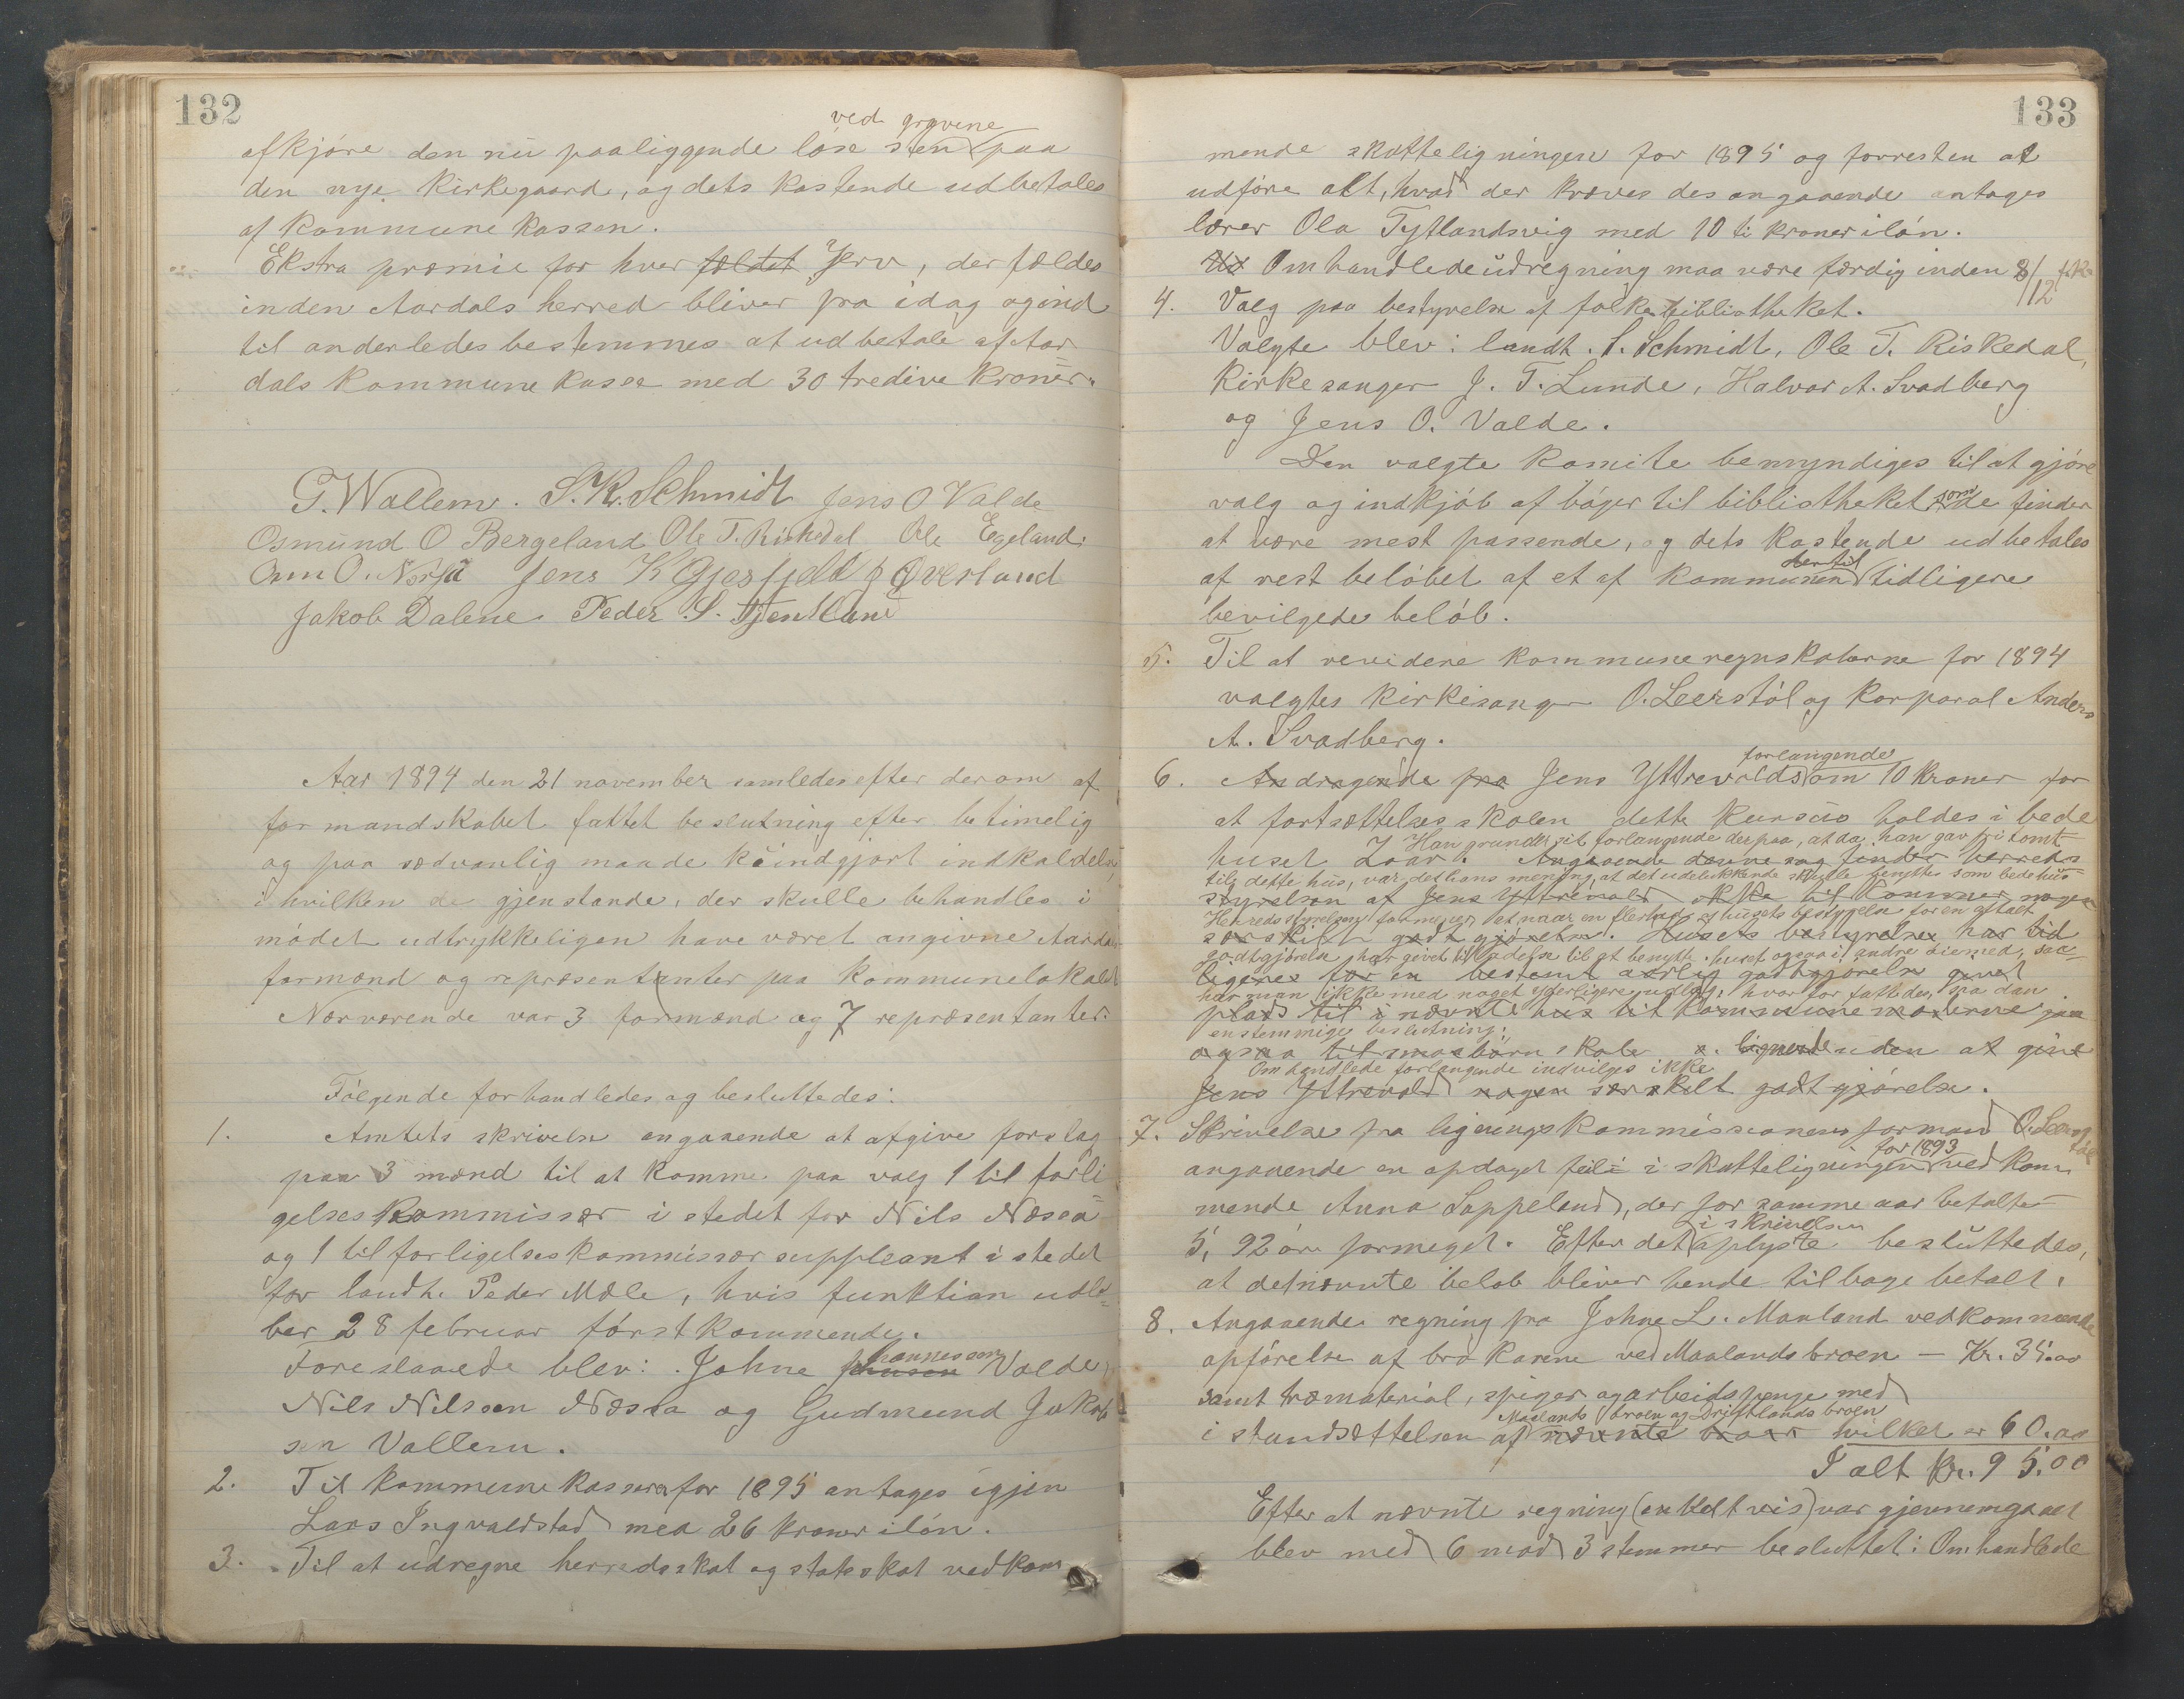 132
ved gravene
afkjøre den nu paaliggende løse sten paa
den nye Kirkegaard, og dets kostende udbetales
af Kommunekassen.
Ekstra præmie for hver fældet Jerv, der fældes
inden Aardals herred bliver fra idag og ind
til anderledes bestemmes at udbetale af Aar
dals Kommunekasse med 30 tredive Kroner.
G. Wallem. S. K. Schmidt Jens O Valde
Osmund O Bergeland Ole T. Riskedal Ole Egeland.
Jens K Gjesfjeld J Øverland
Jakob Dalene. Peder S. Tjentland
Aar 1894 den 21 november samledes efter derom af
formandskabet fattet beslutning efter betimelig
og paa sædvanlig maade kundgjort indkaldelse,
i hvilken de gjenstande, der skulle behandles i
mødet udtrykkeligen have været angivne Aardals
formænd og repræsentanter paa Kommunelokalet
Nærværende var 3 formænd og 7 repræsentanter.
Følgende forhandledes og besluttedes:
1. Amtets skrivelse angaaende at afgive forslag
paa 3 mænd til at komme paa valg 1 til forli
gelseskommissær i stedet for Nils Næssa
og 1 til forligelseskommissær suppleant i stedet
for landh. Peder Mæle, hvis funktion udlø-
ber 28 februar førstkommende.
hannessen
Foreslaaede blev: Johne Johnsen Valde,
Nils Nilssen Næssa og Gudmund Jakob
sen Vallem.
2. Til Kommunekasserer for 1895 antages igjen
Lars Ingvaldstad med 26 kroner i løn.
3. Til at udregne herredsskat og statsskat vedkom
133
mende skatteligningen for 1895 og forresten at
udføre alt, hvad der kræves desangaaende antages
lærer Ola Tytlandsvig med 10 ti kroner i løn.
Omhandlede udregning maa være færdig inden 8/12
4. Valg paa bestyrelse af folkebibliotheket.
Valgte blev: landh. S. Schmidt, Ole T. Riskedal,
Kirkesanger J. T. Lunde, Halvor A. Svadberg
og Jens O. Valde.
Den valgte Komite bemyndiges til at gjøre
valg og indkjøb af bøger til bibliotheket som de finder
at være mest passende, og dets kostende udbetales
dertil
af restbeløbet af et af kommunen tidligere
bevilgede beløb.
5. Til at revidere kommuneregnskaberne for 1894
valgtes kirkesanger O. Leerstøl og Korporal Anders
A. Svadberg.
forlangende
6. Andragende fra Jens Yttrevolds om 10 kroner for
at fortsættelsesskolen dette kursus holdes i bede
Han grunder sit forlangende derpaa, at da han gav fri tomt
huset Laar. Angaaende denne sag finder herreds
til dette hus, var det hans mening, at det udelukkende skulle benyttes som bedehus
styrelsen af Jens Yttrevold ikke til kommer nogen
Herredsstyrelsen formener, at naar en flerhed af husets bestyrelse for en aftalt
særskilt godtgjørelse. Husets bestyrelse har tid
godtgjørelse har givet tilladelse til at benytte huset ogsaa i andre øiemed, saa
ligere for en bestemt aarlig godtgjørelse givet
har man ikke med noget yderligere udlæg, hvorfor fattedes saadan
plads til i nævnte hus til kommunemøderne
enstemmige beslutning:
ogsaa til smaabørnskole o. lignende uden at give
Omhandlede forlangende indvilges ikke
Jens Yttrevold nogen særskilt godtgjørelse.
7. Skrivelse fra ligningskommissionens formand O. Leerstøl
for 1893
angaaende en opdaget feil i skatteligningen vedkom
mende Anna Sappeland, der for samme aar betalte
i skrivelsen
5, 92 øre formeget. Efter det oplyste besluttedes,
at det nævnte beløb bliver hende tilbage betalt.
8. Angaaende regning fra Johne L. Maaland vedkommende
opførelse af brokarene ved Maalandsbroen – Kr. 35.00
samt træmaterial, spiger og arbeidspenge med
Maalands broen og Driftlands broen
istandsættelsen af nævnte broer hvilket er 60.00
I alt Kr. 95.00
Efter at nævnte regning (enkeltvis) var gjennemgaaet
blev med 6 mod 3 stemmer besluttet: Omhandlede